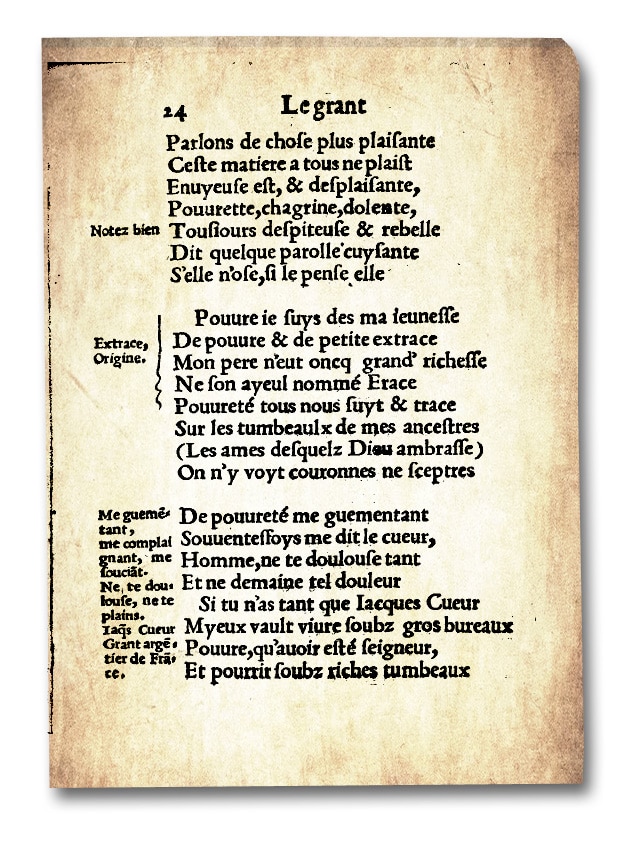 24 Le grant
Parlons de choſe plus plaiſante
Ceſte matiere a tous ne plaiſt
Enuyeuſe eſt, & deſplaiſante,
Pouurette, chagrine, dolente,
Notez bien
Touſiours deſpiteuſe & rebelle
Dit quelque parolle cuyſante
S'elle n'oſe, ſi le penſe elle
Pouure ie ſuys des ma ieuneſſe
Extrace,
Origine.
De pouure & de petite extrace
Mon pere n'eut oncq grand' richeſſe
Ne ſon ayeul nommé Erace
Pouureté tous nous ſuyt & trace
Sur les tumbeaulx de mes anceſtres
(Les ames deſquelz Dieu ambraſſe)
On n'y voyt couronnes ne ſceptres
Me guemē-
tant,
me complai
gnant, me
ſouciāt.
Ne, te dou-
louſe, ne te
plains.
Iaq̄s Cueur
Grant argē-
tier de Frā-
ce.
De pouureté me guementant
Souuenteſfoys me dit le cueur,
Homme, ne te doulouſe tant
Et ne demaine tel douleur
Si tu n'as tant que Iacques Cueur
Myeux vault viure ſoubz gros bureaux
Pouure, qu'auoir eſté ſeigneur,
Et pourrir ſoubz riches tumbeaux